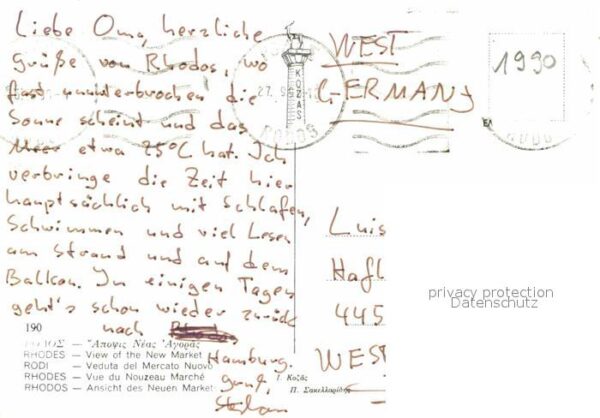 Liebe Oma, herzliche
Grüße von Rhodos, wo
fast ununterbrochen die
Sonne scheint und das
Meer etwa 25°C hat. Ich
verbringe die Zeit hier
hauptsächlich mit Schlafen,
Schwimmen und viel Lesen
am Strand und auf dem
Balkon. In einigen Tagen
geht's schon wieder zurück
nach
Hamburg.
Stefan
WEST
GERMANY
1990
KOZAS
27.
Luis
Hafl
445
WEST
privacy protection
Datenschutz
190
ΡΟΔΟΣ — Ἄποψις Νέας Ἀγορᾶς
RHODES — View of the New Market
RODI — Veduta del Mercato Nuovo
RHODES — Vue du Nouzeau Marché
RHODOS — Ansicht des Neuen Market
Ι. Κοζᾶς
Π. Σακελλαρίδης